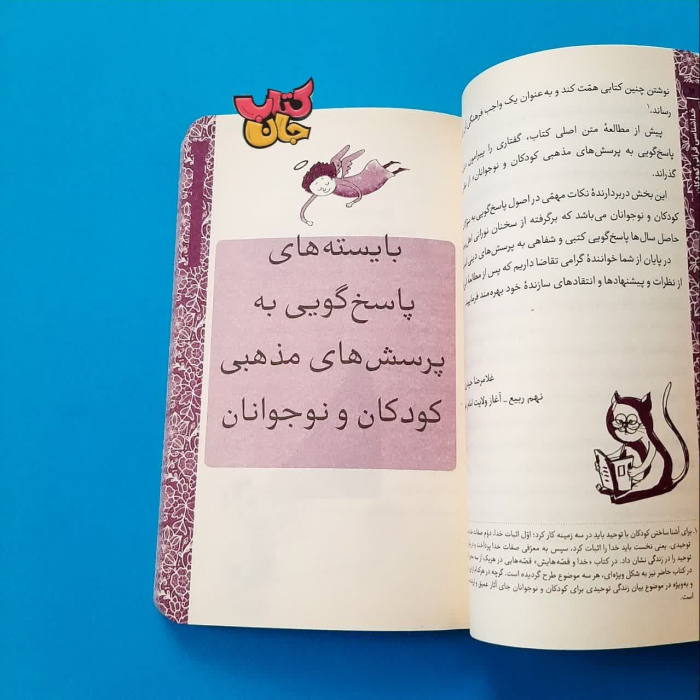 نوشتن چنین کتابی همّت کند و به‌عنوان یک واجب فرهنگی
رساند.۱
پیش از مطالعهٔ متن اصلی کتاب، گفتاری را پیرامون
پاسخ‌گویی به پرسش‌های مذهبی کودکان و نوجوانان» از
گذراند.
این بخش دربردارندهٔ نکات مهمّی در اصول پاسخ‌گویی به
کودکان و نوجوانان می‌باشد که برگرفته از سخنان نورانی
حاصل سال‌ها پاسخ‌گویی کتبی و شفاهی به پرسش‌های دینی
در پایان از شما خوانندهٔ گرامی تقاضا داریم که پس از مطالعهٔ
از نظرات و پیشنهادها و انتقادهای سازندهٔ خود بهره‌مند
غلامرضا
نهم ربیع ـ آغاز ولایت امام
۱. برای آشنا ساختن کودکان با توحید باید در سه زمینه کار کرد: اوّل اثبات خدا، دوّم صفات
توحیدی. یعنی نخست باید خدا را اثبات کرد، سپس به معرّفی صفات خدا پرداخت و
توحید را در زندگی نشان داد. در کتاب «خدا و قصّه‌هایش» قصّه‌هایی در هریک از سه
در کتاب حاضر نیز به شکل ویژه‌ای، هر سه موضوع طرح گردیده است. گرچه در هرکدام از
و به‌ویژه در موضوع بیان زندگی توحیدی برای کودکان و نوجوانان جای آثار عمیق و
است.
کتاب
جان
بایسته‌های
پاسخ‌گویی به
پرسش‌های مذهبی
کودکان و نوجوانان